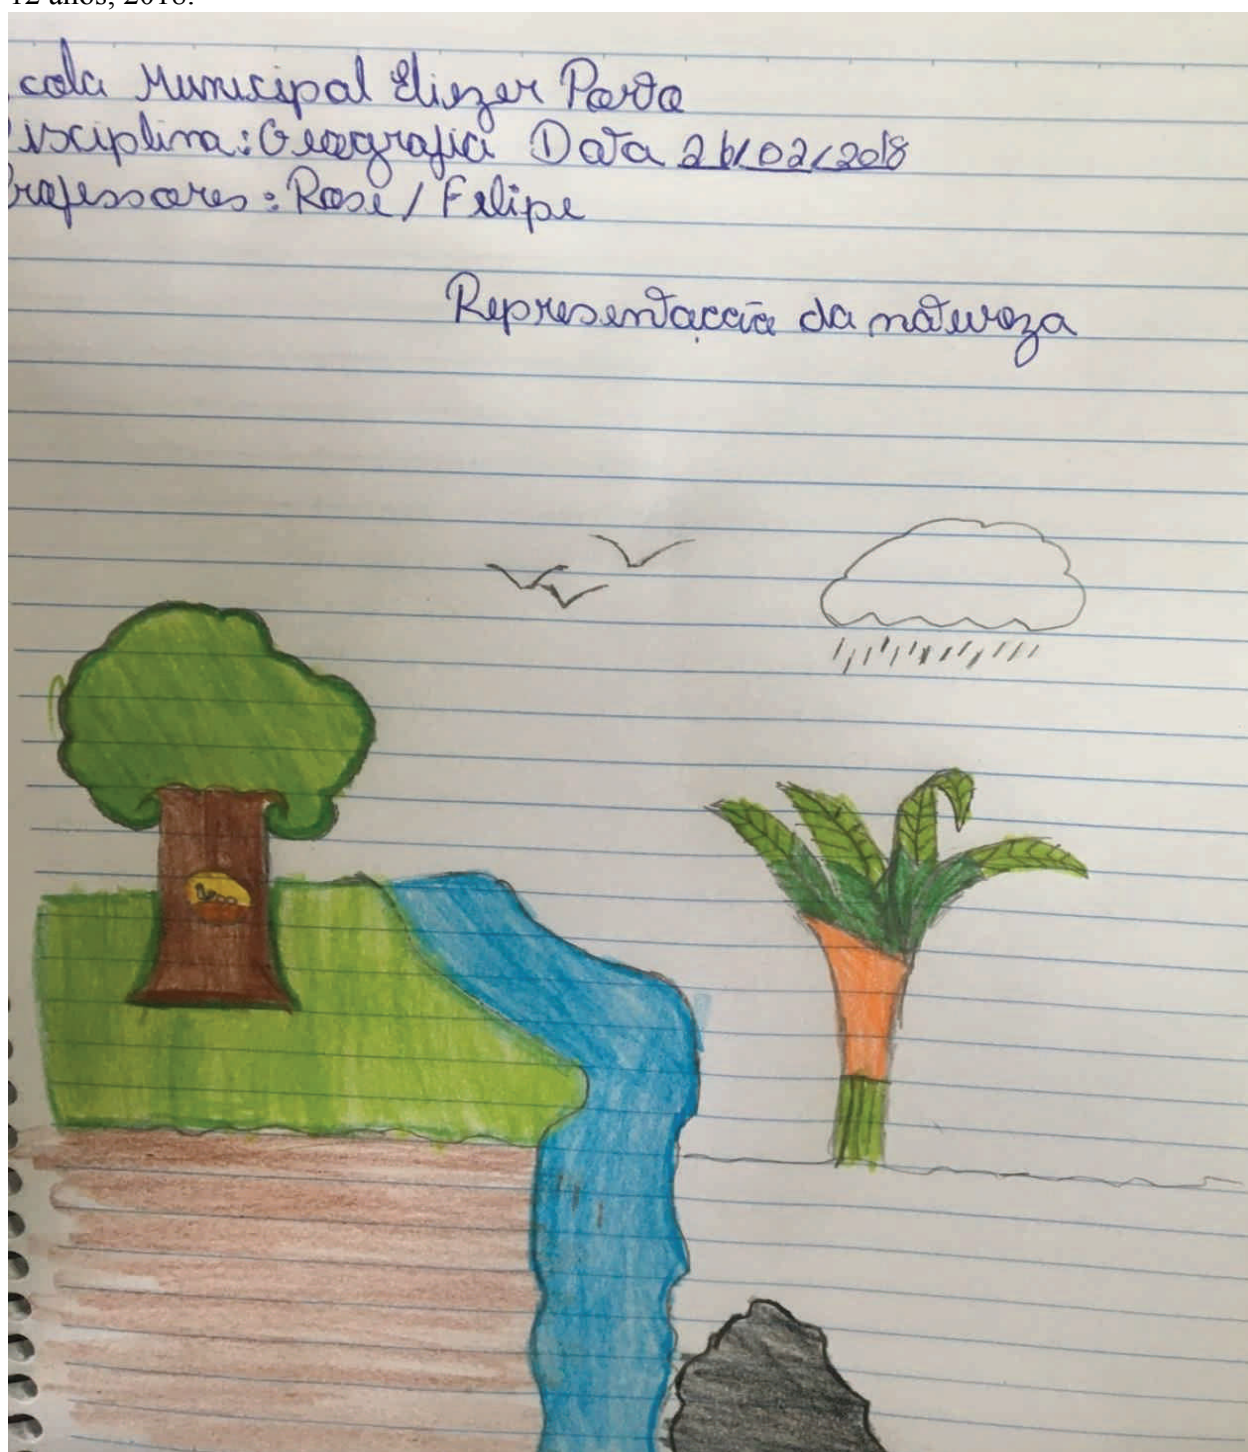 12 anos, 2018.
cola Municipal Eliezer Porto
isciplina: Geografia Data 26/02/2018
rofessores: Rose / Felipe
Representaçcão da natureza